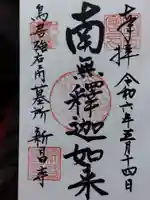 奉拝
令和六年五月十四日
南無釋迦如来
鳥居強右衛門墓所
新昌寺